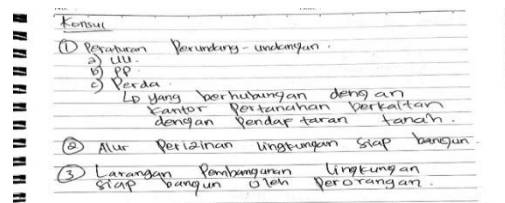 Konsul
① Peraturan Perundang-undangan.
a) UU.
b) PP.
c) Perda.
↳ yang berhubungan dengan
Kantor Pertanahan berkaitan
dengan Pendaftaran tanah.
② Alur Perizinan lingkungan siap bangun.
③ Larangan Pembangunan Lingkungan
siap bangun oleh Perorangan.